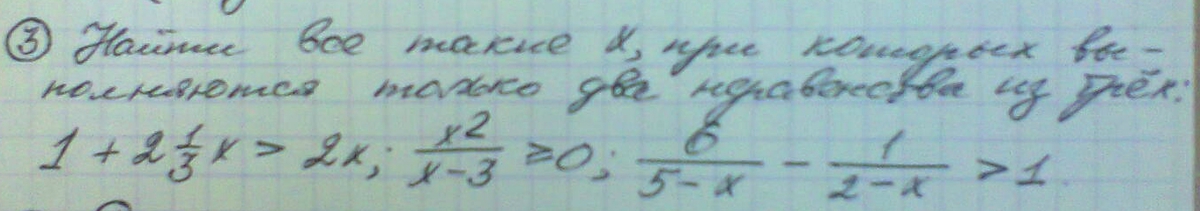 ③ Найти все такие x, при которых вы-
полняются только два неравенства из трёх:
1 + 2 1/3 x > 2x; x²/(x-3) ≥ 0; 6/(5-x) - 1/(2-x) > 1.